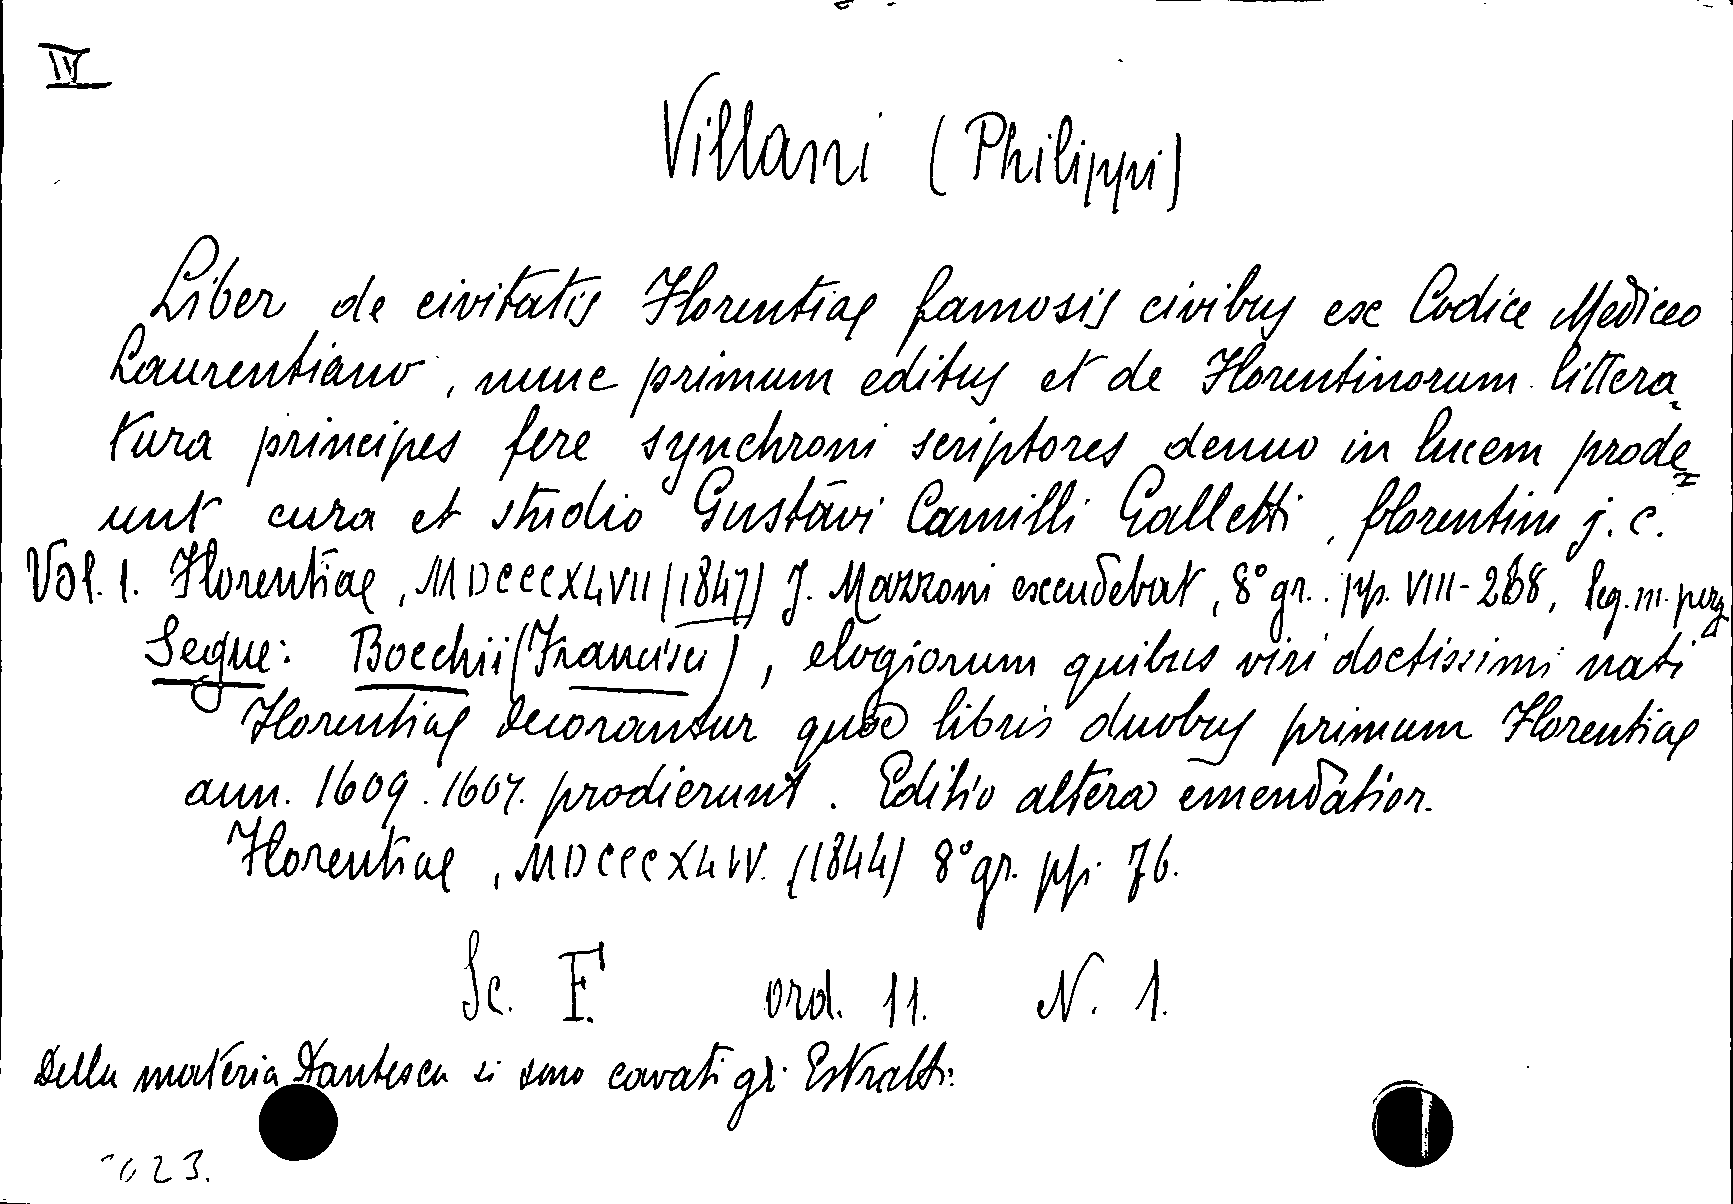 IV
Villani (Philippi)
Liber de civitatis Florentiae famosis civibus ex Codice Mediceo
Laurentiano, nunc primum editus et de Florentinorum littera-
tura principes fere synchroni scriptores denuo in lucem prode=
unt cura et studio Gustavi Camilli Galletti, florentini j. c.
Vol. 1. Florentiae, MDCCCXLVII (1847) J. Mazzoni excudebat, 8° gr. pp. VIII-268, leg. m. perg
Segue: Bocchii (Francisci), elogiorum quibus viri doctissimi nati
Florentiae decorantur quae libris duobus primum Florentiae
ann. 1609. 1607. prodierunt. Editio altera emendatior.
Florentiae, MDCCCXLIV. (1844) 8° gr. pp. 76.
Sc. F. ord. 11. N. 1.
Della materia Dantesca si sono cavati gl. Estratti.
023.